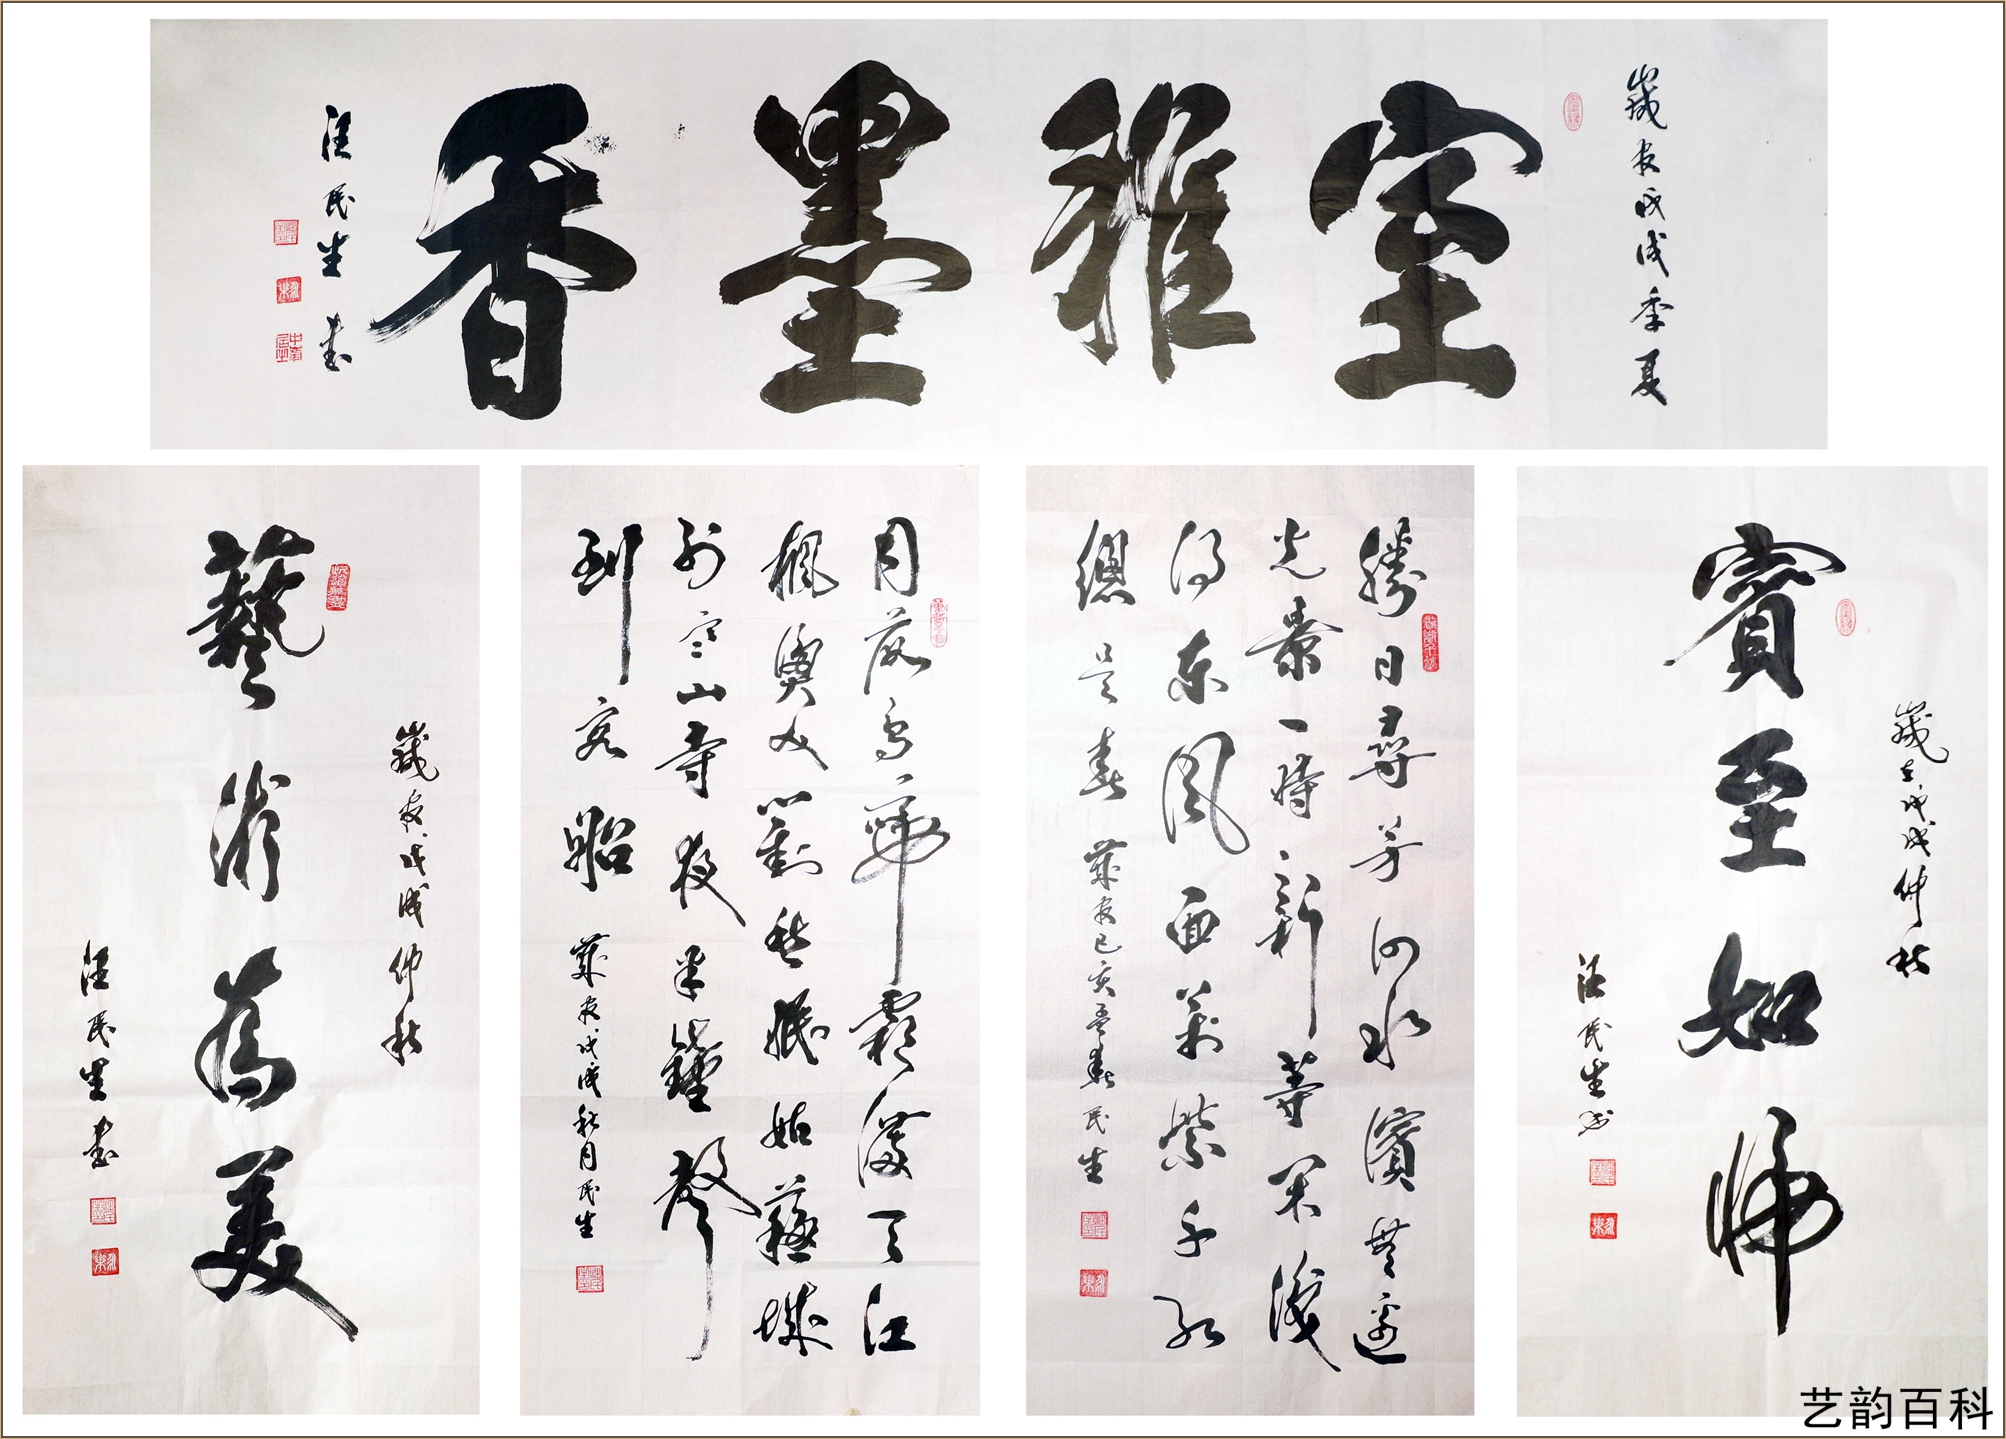 歲在戊戌季夏
室雅墨香
汪民生書
歲在戊戌仲秋
賓至如歸
汪民生书
勝日尋芳泗水濱無邊
光景一時新等闲識
得東風面萬紫千紅
總是春 歲在己亥孟春民生
月落烏啼霜滿天江
楓漁火對愁眠姑蘇城
外寒山寺夜半鐘聲
到客船 歲在戊戌秋月民生
歲在戊戌仲秋
藝術為美
汪民生書
艺韵百科